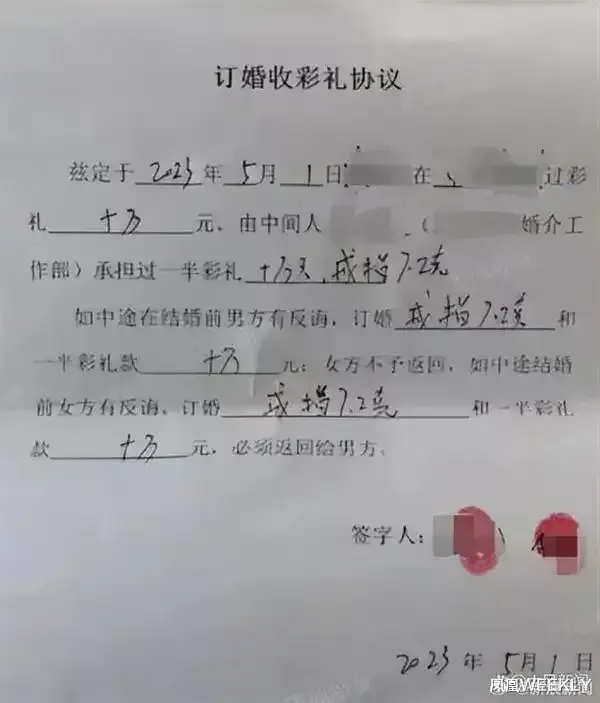 订婚收彩礼协议
兹定于 2023 年 5月 1 日 在 过彩
礼 十万 元、由中间人 （ 婚介工
作部）承担过一半彩礼 十万元，戒指7.2克
如中途在结婚前男方有反诲，订婚 戒指7.2克 和
一半彩礼款 十万 元；女方不予返回，如中途结婚
前女方有反诲，订婚 戒指7.2克 和一半彩礼
款 十万 元，必须返回给男方。
签字人：
2023 年 5月 1 日
凤凰WEEKLY